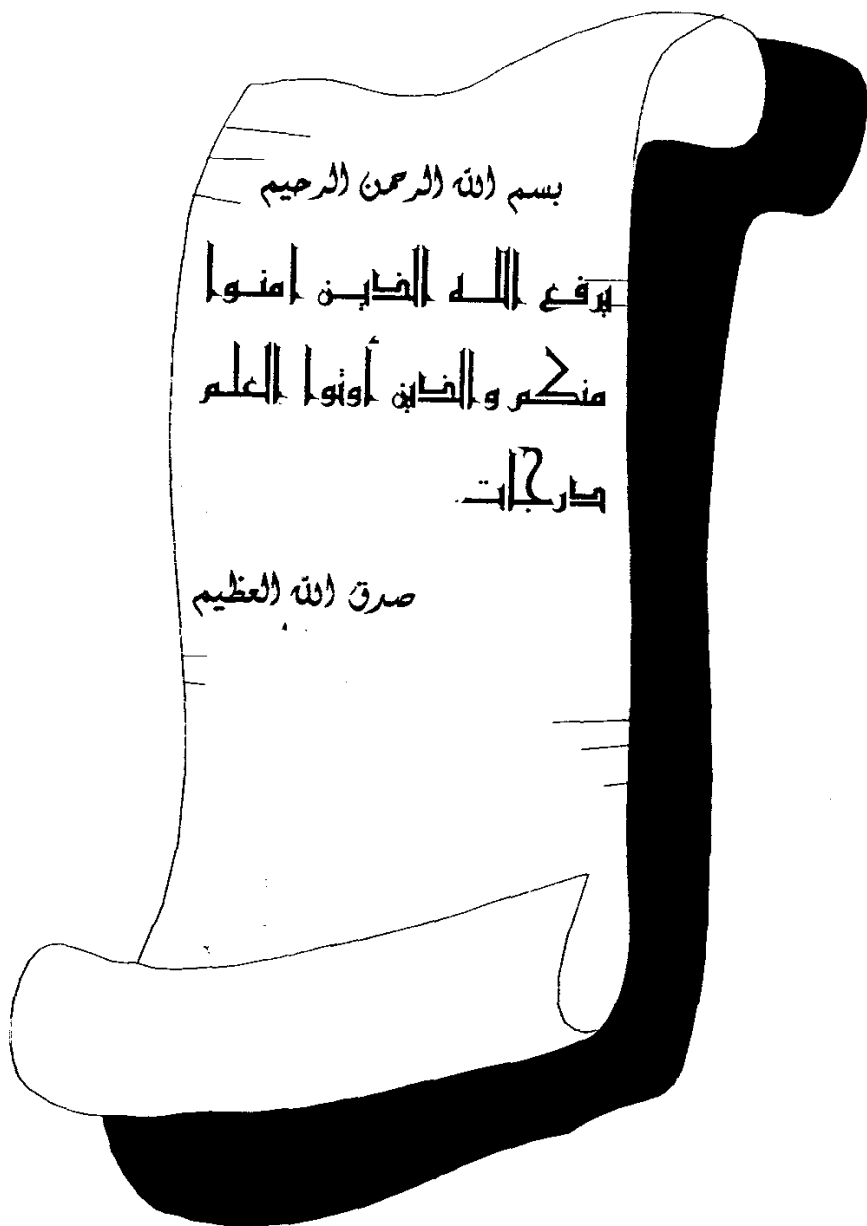 بسم الله الرحمن الرحيم
يرفع الله الذين امنوا
منكم والذين أوتوا العلم
درجات
صدق الله العظيم